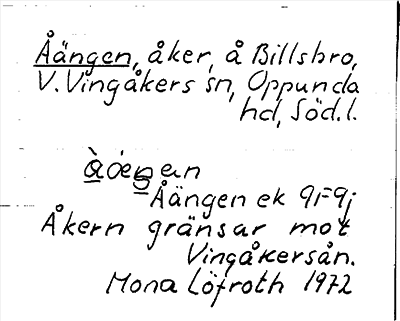 Åängen, åker, å Billsbro,
V. Vingåkers sn, Oppunda
hd, Söd. l.
Åängen ek 9i-9j
Åkern gränsar mot
Vingåkersån.
Mona Löfroth 1972